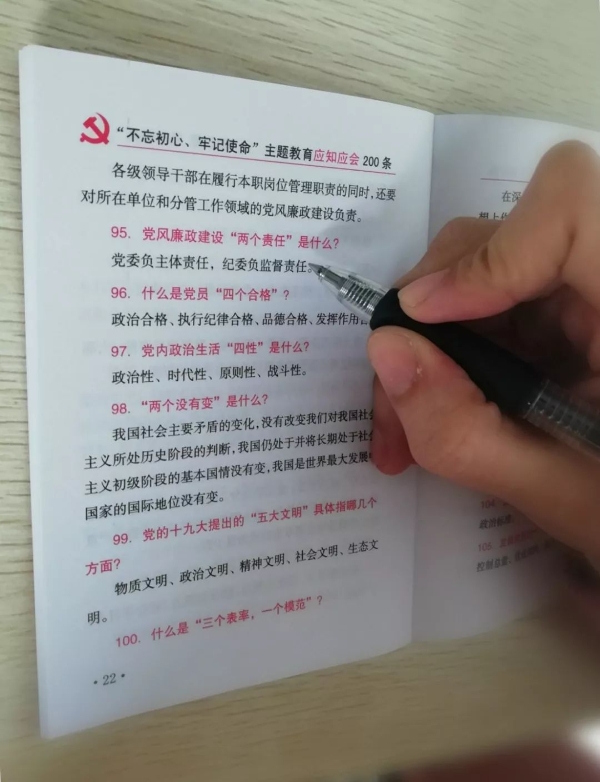 “不忘初心、牢记使命”主题教育应知应会 200 条
各级领导干部在履行本职岗位管理职责的同时,还要
对所在单位和分管工作领域的党风廉政建设负责。
95. 党风廉政建设“两个责任”是什么?
党委负主体责任，纪委负监督责任。
96. 什么是党员“四个合格”?
政治合格、执行纪律合格、品德合格、发挥作用合
97. 党内政治生活“四性”是什么?
政治性、时代性、原则性、战斗性。
98. “两个没有变”是什么?
我国社会主要矛盾的变化,没有改变我们对我国社会
主义所处历史阶段的判断,我国仍处于并将长期处于社
主义初级阶段的基本国情没有变,我国是世界最大发展
国家的国际地位没有变。
99. 党的十九大提出的“五大文明”具体指哪几个
方面?
物质文明、政治文明、精神文明、社会文明、生态文
明。
100. 什么是“三个表率，一个模范”?
·22·
在深
想上
104.
政治标准
105.
控制总量